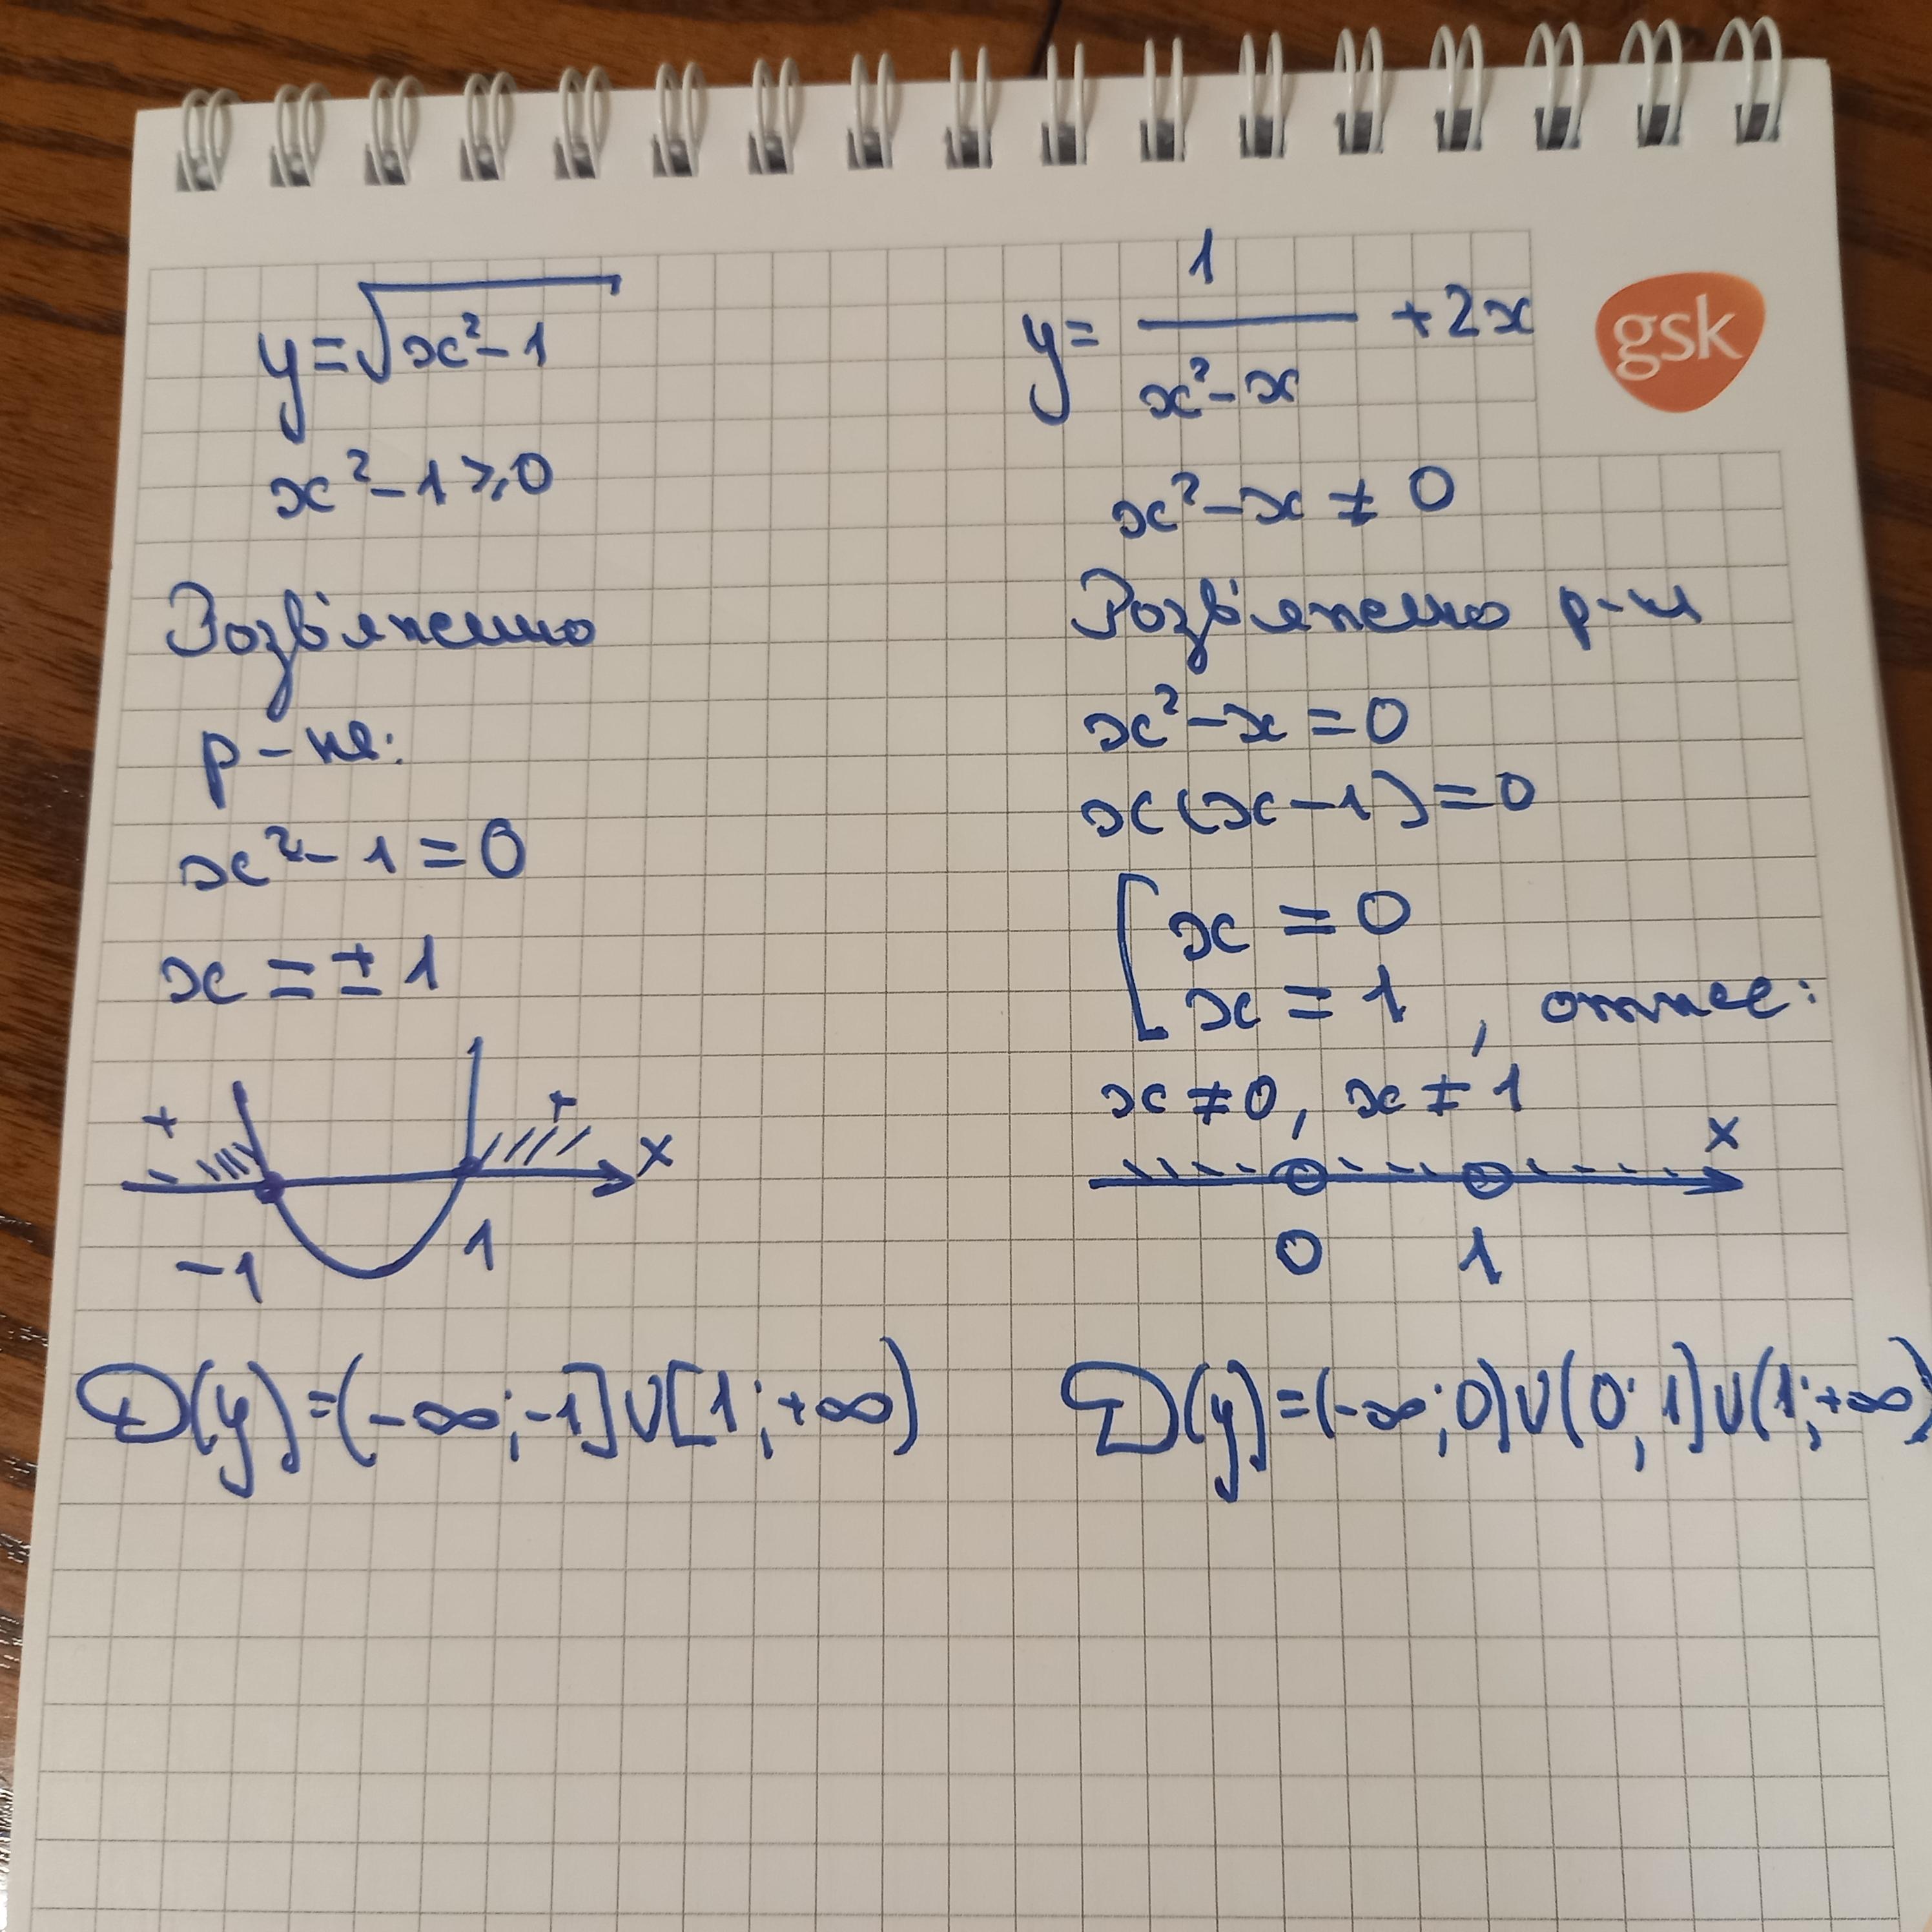 y=√x²-1
x²-1≥0
Розв'яжемо
р-ня:
x²-1=0
x=±1
+ + x
-1 1
D(y)=(-∞;-1]∪[1;+∞)
y= 1/(x²-x) +2x
gsk
x²-x≠0
Розв'яжемо р-ня
x²-x=0
x(x-1)=0
[x=0
x=1, отже:
x≠0, x≠1
x
0 1
D(y)=(-∞;0)∪(0;1]∪(1;+∞)